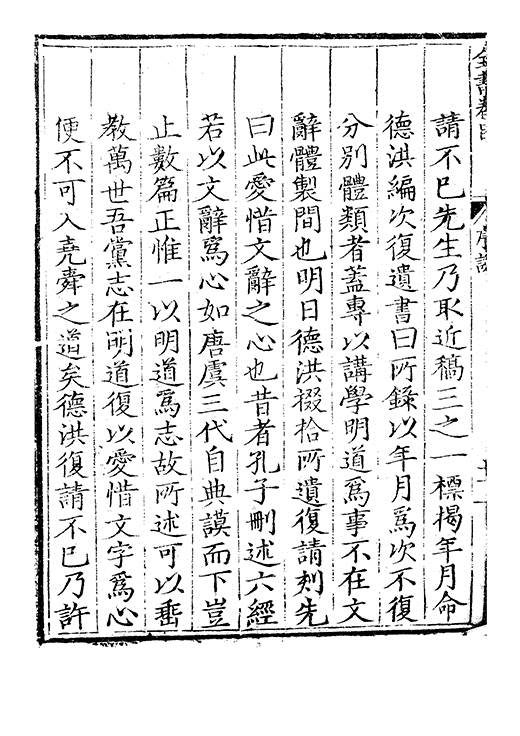 請不已先生乃取近稿三之一標揭年月命
德洪編次復遺書曰所錄以年月爲次不復
分別體類者蓋專以講學明道爲事不在文
辭體製間也明日德洪掇拾所遺復請刻先
曰此愛惜文辭之心也昔者孔子刪述六經
若以文辭爲心如唐虞三代自典謨而下豈
止數篇正惟一以明道爲志故所述可以垂
教萬世吾黨志在明道復以愛惜文字爲心
便不可入堯舜之道矣德洪復請不已乃許